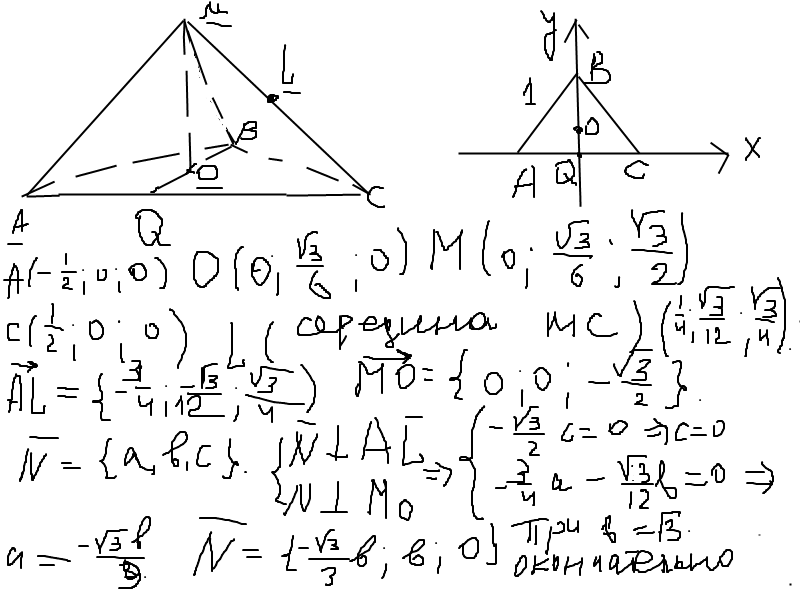 M
L
B
O
A
Q
C
y
B
1
O
A
Q
C
x
A(-1/2; 0; 0) O(0; √3/6; 0) M(0; √3/6; √3/2)
C(1/2; 0; 0) L(середина MC)(1/4; √3/12; √3/4).
AL = {-3/4; -√3/12; √3/4) MO = {0; 0; -√3/2}.
N = {a, b, c}. {N ⊥ AL N ⊥ MO ⇒ {-√3/2 c = 0 ⇒ c = 0
-3/4 a - √3/12 b = 0 ⇒
a = -√3 b/9. N = {-√3/3 b; b; 0} При b = √3.
окончательно